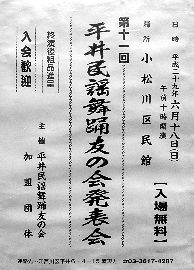 日時 平成二十九年六月十八日(日)
午前十時開演
場所 小松川区民館
【入場無料】
第十一回
平井民謡舞踊友の会発表会
主催 平井民謡舞踊友の会
加盟団体
終演後粗品進呈
入会歓迎
☎03-3617-4287